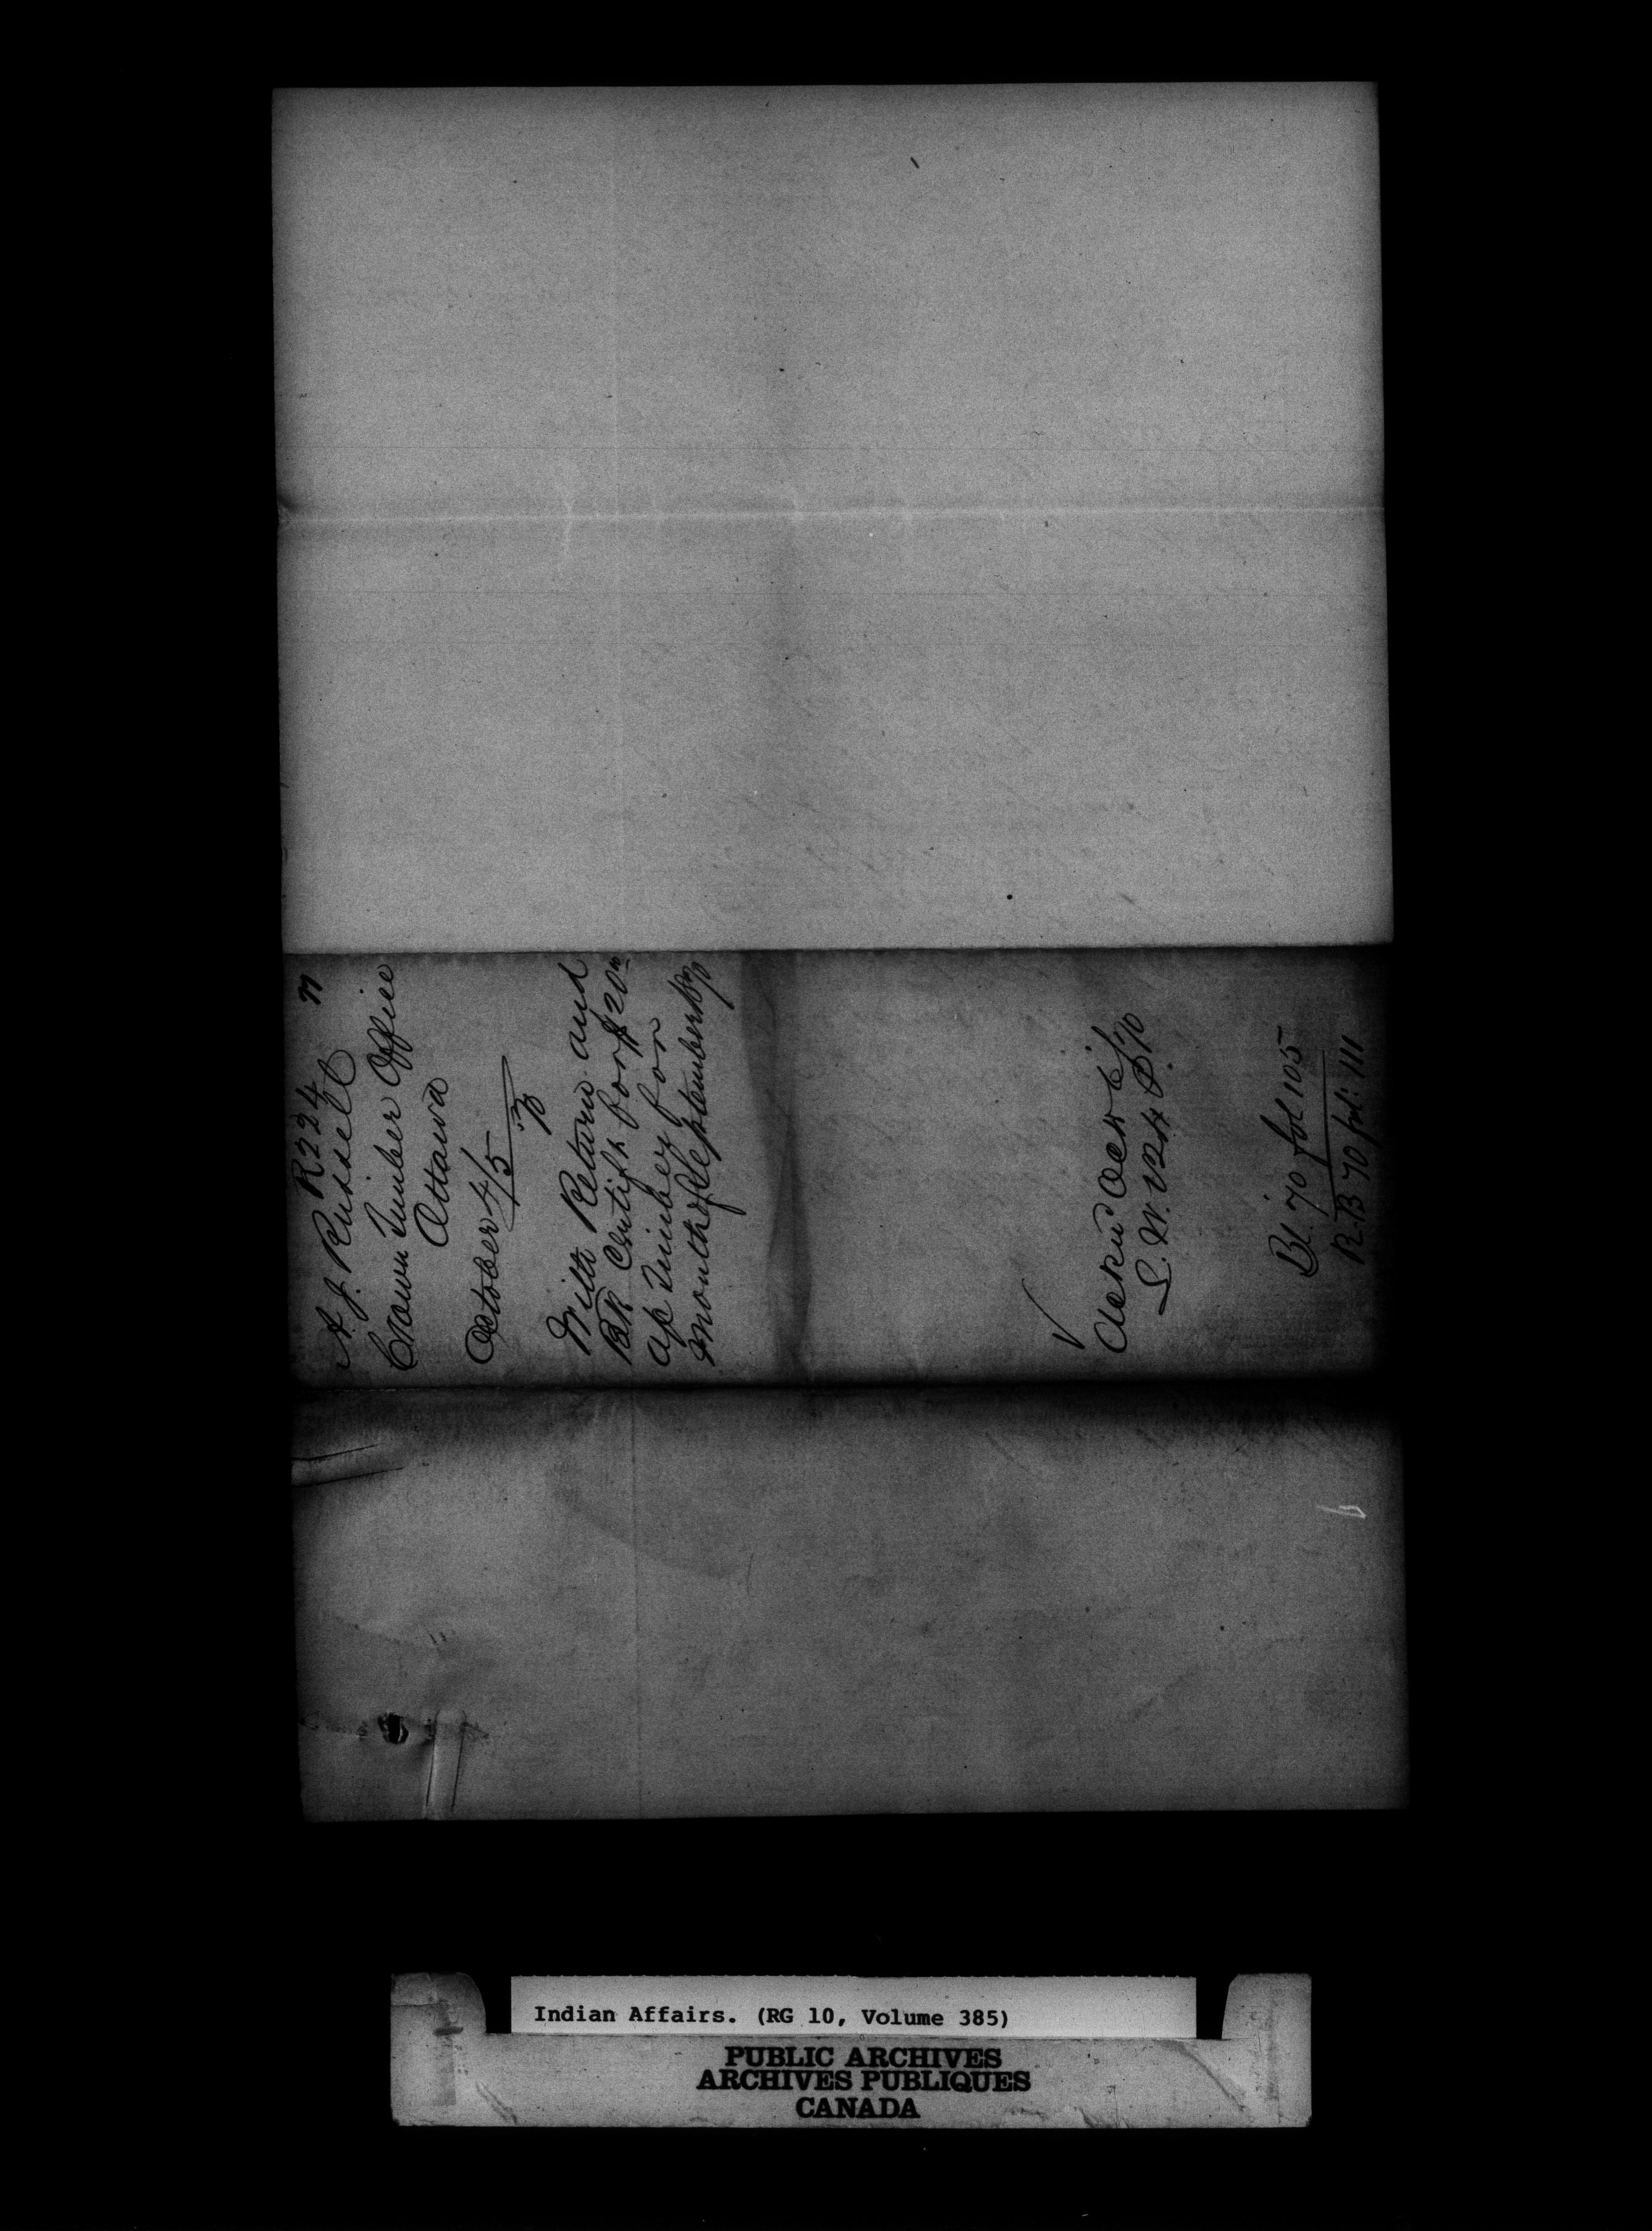 R224
A. J. Russell
Crown Timber Office
Ottawa
October 4/5
70
With Return and
BK Certif for $20
Timber for
month of September
Ackn'd Oct 6/70
Bl. 70 fol 105
R.B 70 fol: 111
Indian Affairs. (RG 10, Volume 385)
PUBLIC ARCHIVES
ARCHIVES PUBLIQUES
CANADA